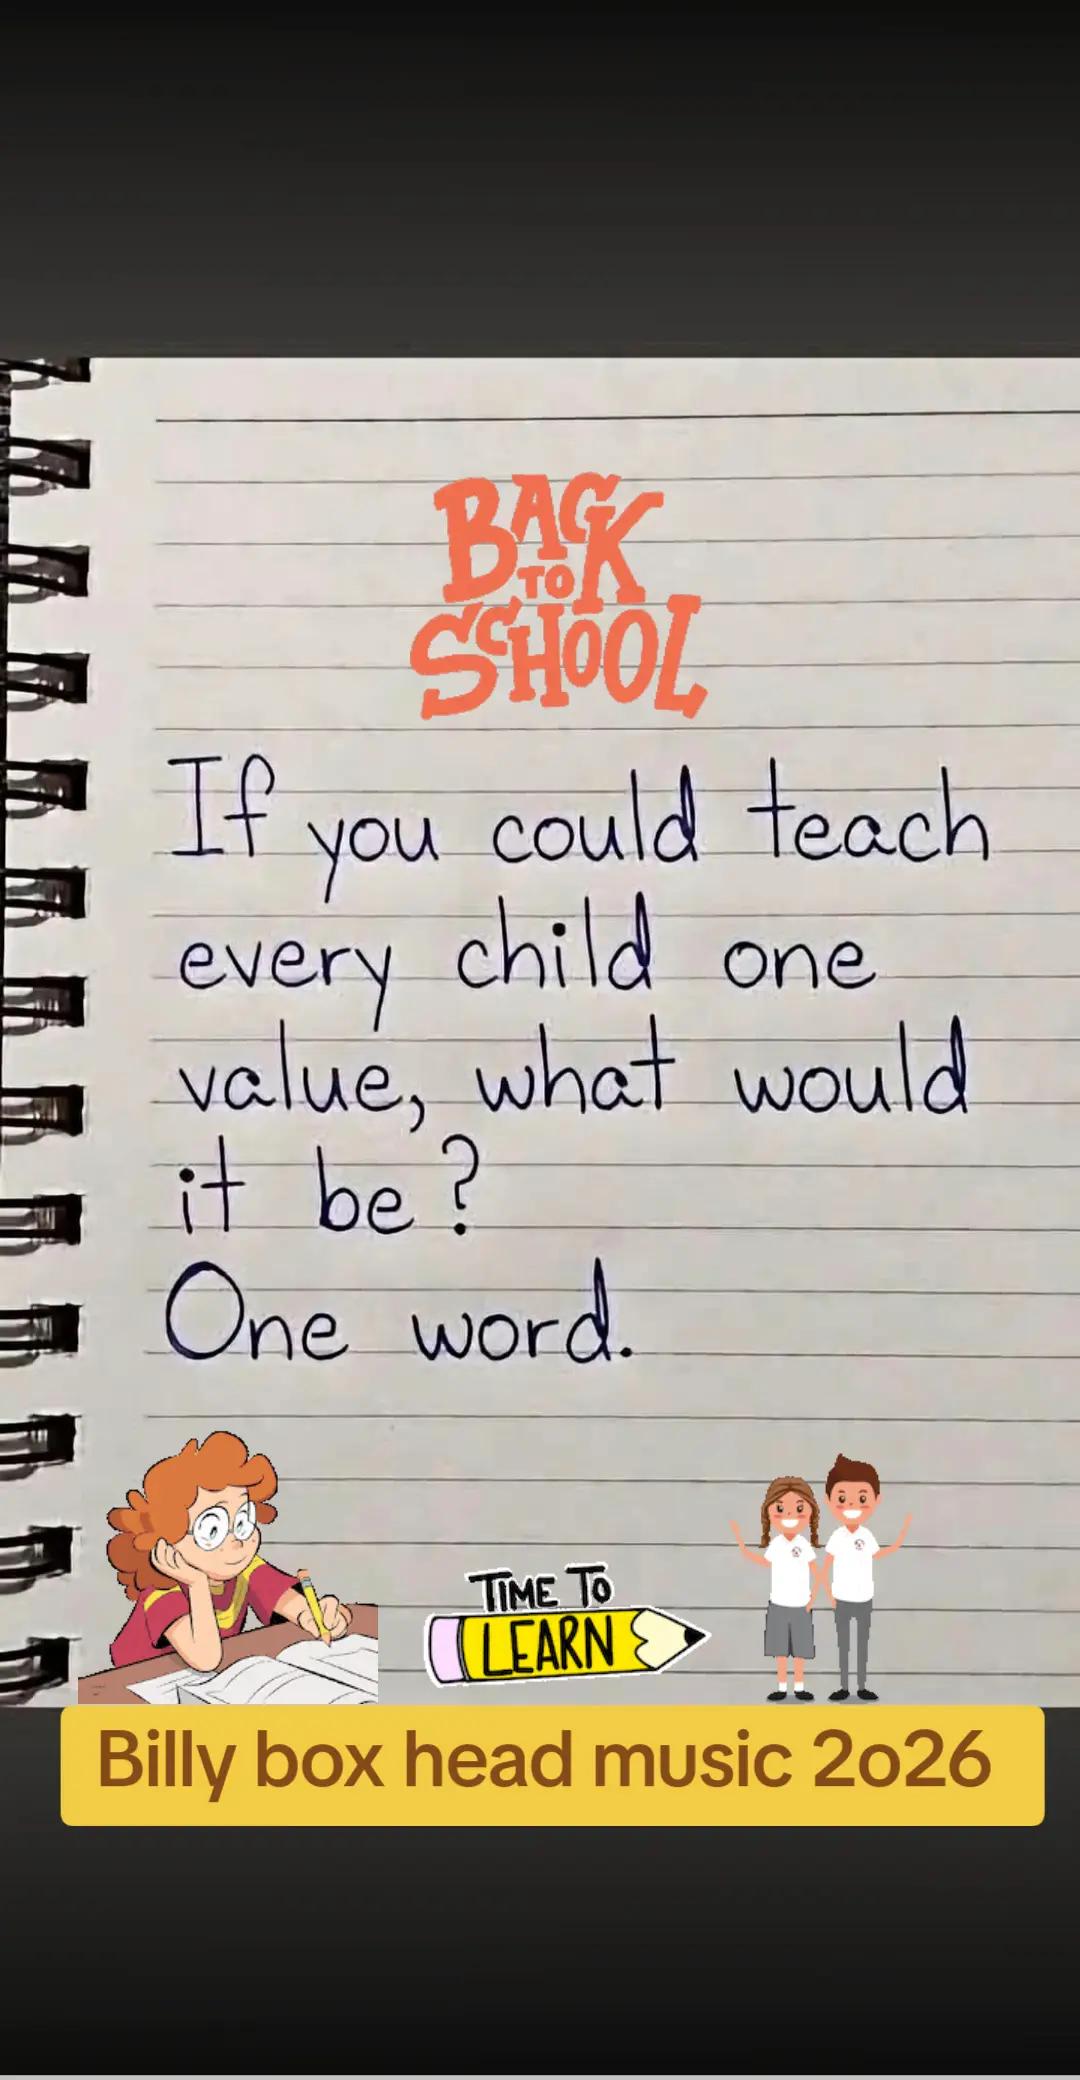 BACK
TO
SCHOOL
If you could teach
every child one
value, what would
it be?
One word.
TIME TO
LEARN
Billy box head music 2o26